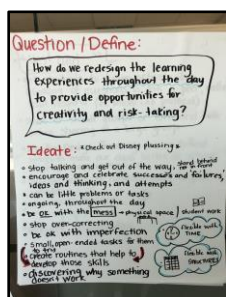 Question / Define:
How do we redesign the learning
experiences throughout the day
to provide opportunities for
creativity and risk-taking?
Ideate: *Check out Disney planning*
• stop talking and get out of the way, stand behind
• encourage and celebrate successes and failures,
ideas and thinking, and attempts
• can be little problems or tasks
• ongoing, throughout the day
• be OK with the mess → physical space / student work
• stop over-correcting
• be ok with imperfection
• small, open-ended tasks for them
to try
• create routines that help to
develop those skills
• discovering why something
doesn't work
flexible with
TIME
flexible with
STRUCTURES